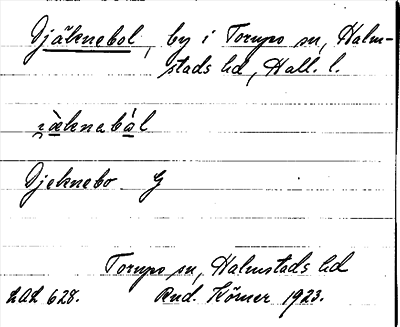 Djäknebol, by i Torups sn, Halm-
stads hd, Hall. l.
jäknabål
Djeknebo G
Torups sn, Halmstads hd
LAL 628. Rud. Körner 1923.